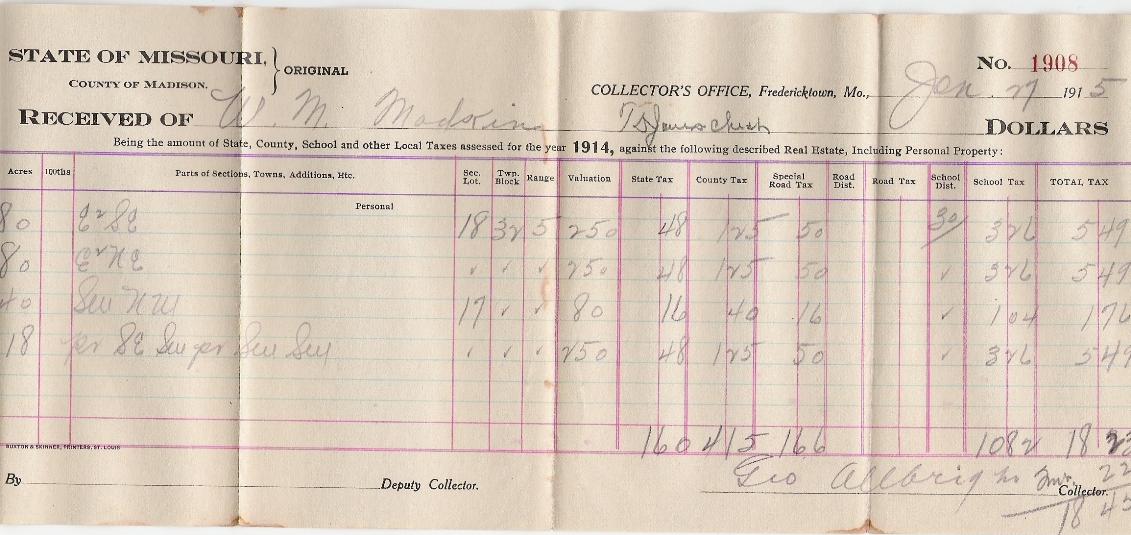 STATE OF MISSOURI, ORIGINAL No. 1908
COUNTY OF MADISON.
COLLECTOR'S OFFICE, Fredericktown, Mo., Jan. 27 1915
RECEIVED OF W. M. DOLLARS
Being the amount of State, County, School and other Local Taxes assessed for the year 1914, against the following described Real Estate, Including Personal Property:
Acres 100ths Parts of Sections, Towns, Additions, Etc. Sec. Lot. Twp. Block Range Valuation State Tax County Tax Special Road Tax Road Dist. Road Tax School Dist. School Tax TOTAL TAX
Personal
80 E2 SE 18 32 5 250 48 125 50 30 326 549
80 E2 NE ✓ ✓ ✓ 250 48 125 50 ✓ 326 549
40 SW NW 17 ✓ ✓ 80 16 40 16 ✓ 104 176
18 pr SE SW pr SW SW ✓ ✓ ✓ 250 48 125 50 ✓ 326 549
160 415 166 1082 18 23
BUXTON & SKINNER, PRINTERS, ST. LOUIS
By Deputy Collector. Geo Allbright Collector. 22
18 45